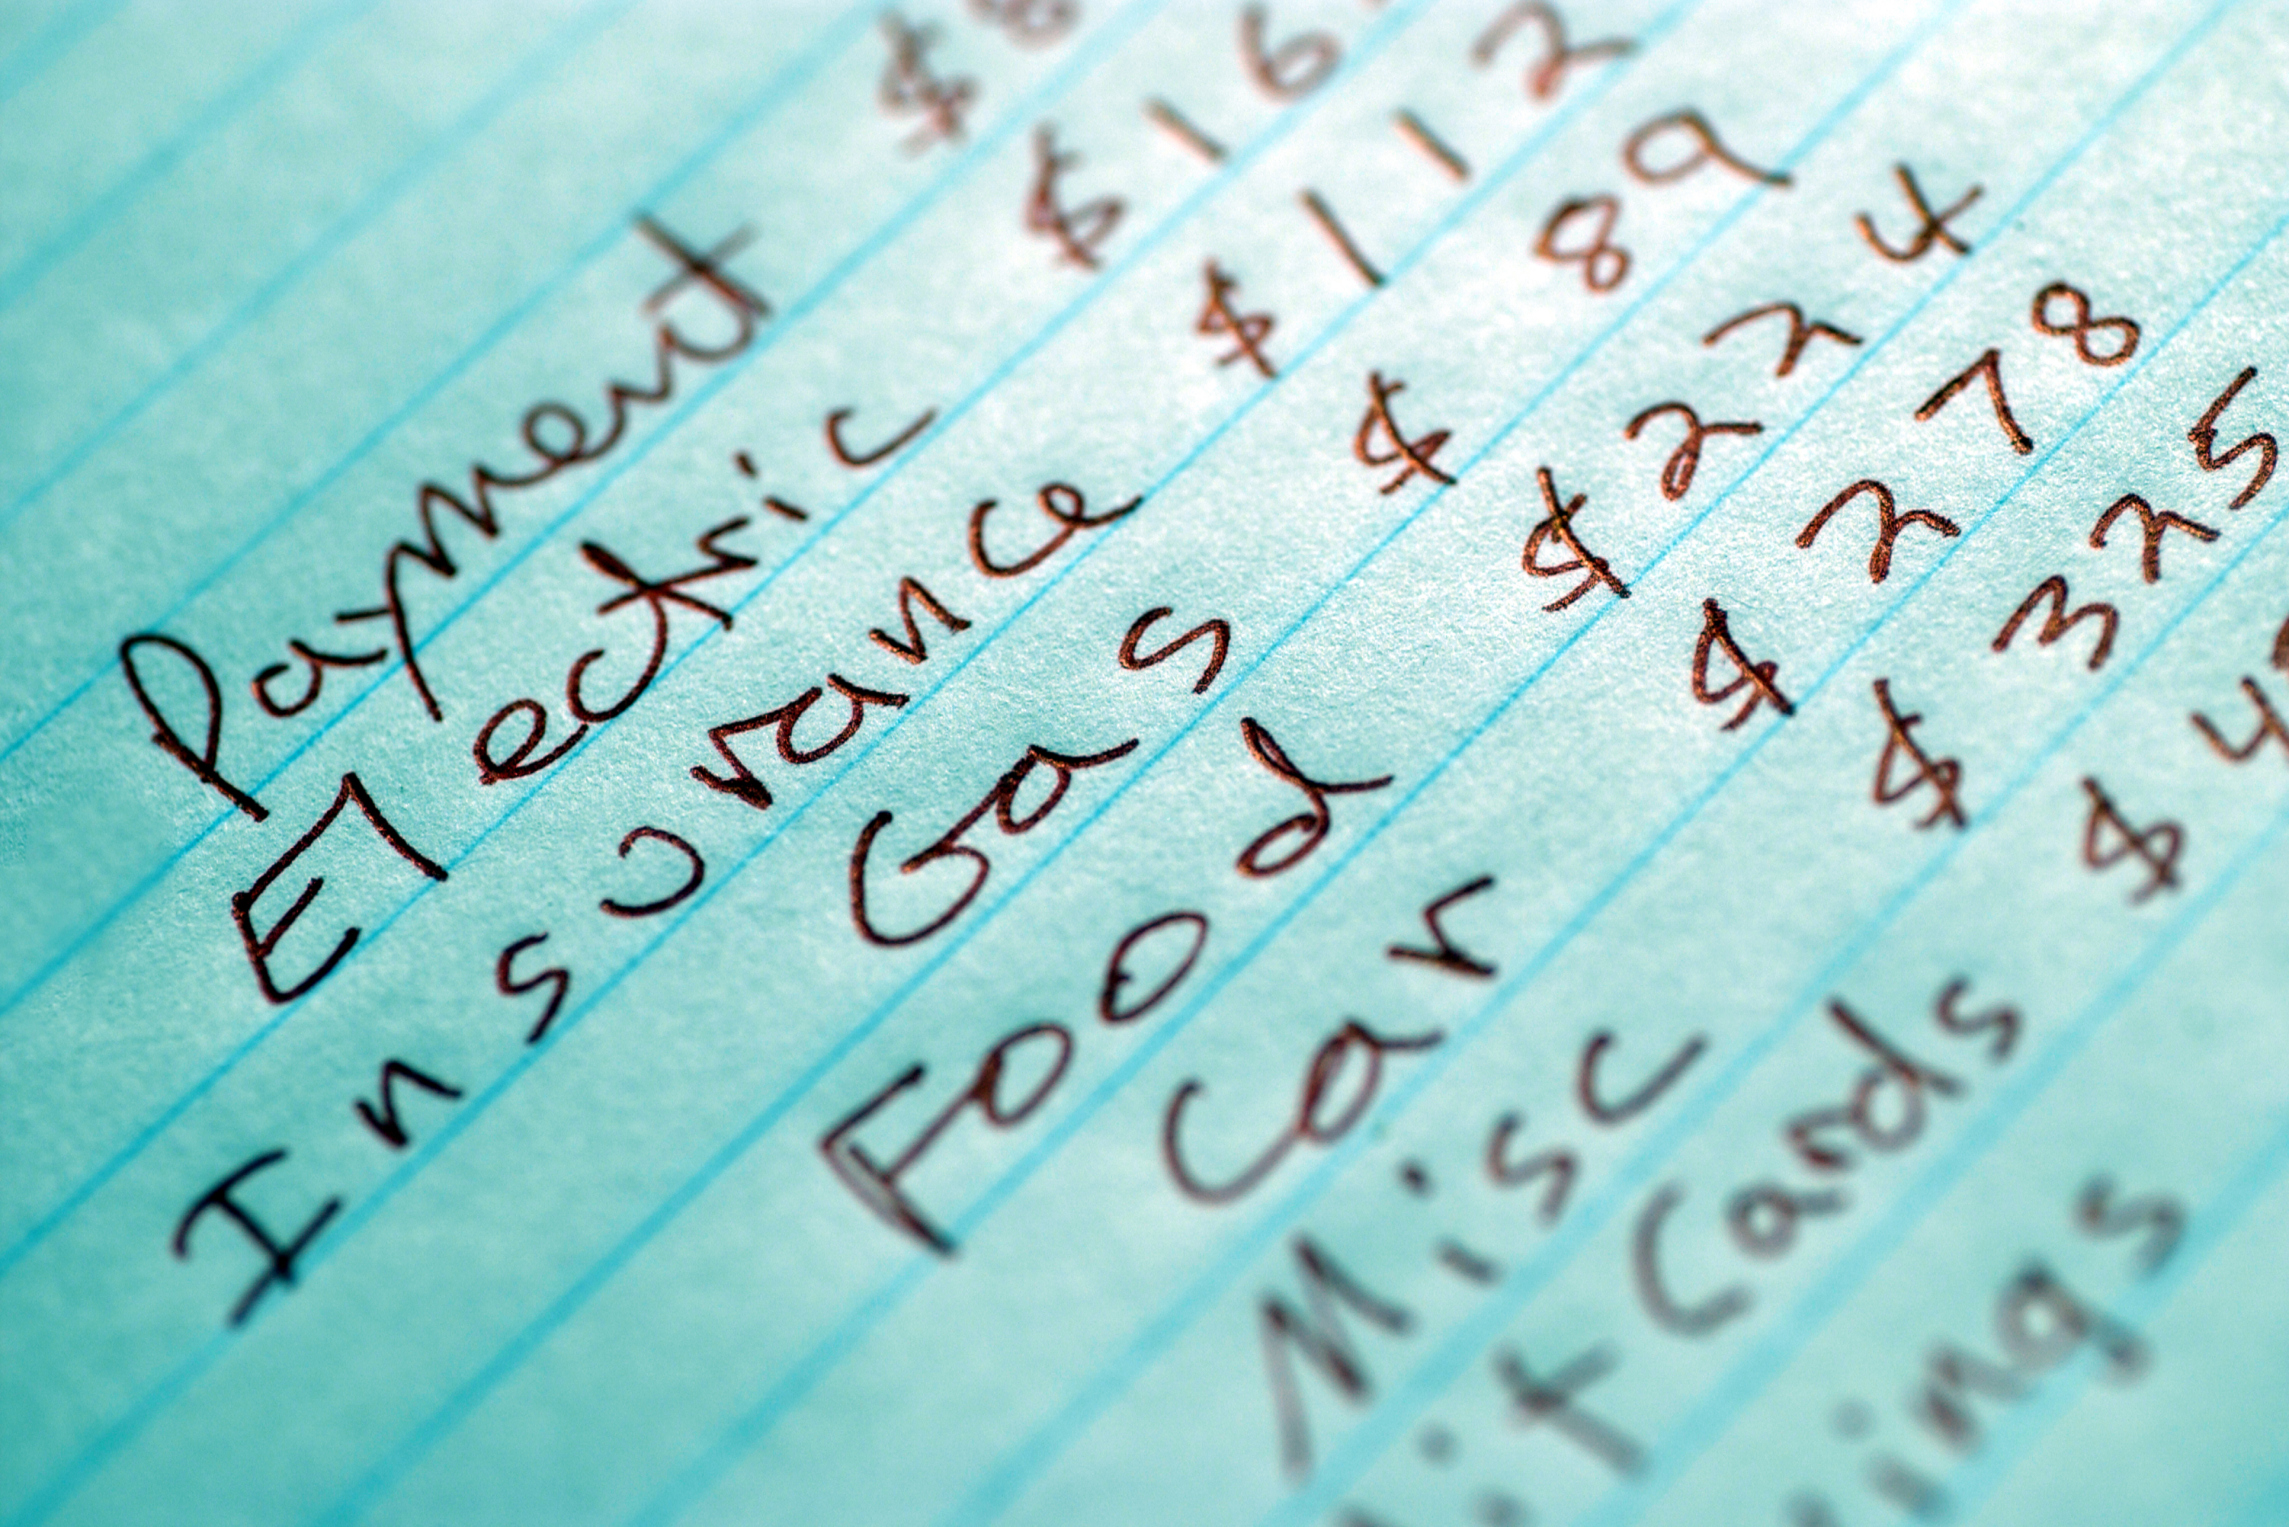 Payment $
Electric $ 16
Insurance $ 112
Gas $ 89
Food $ 224
Car $ 278
Misc $ 325
it Cards $ 4
ings